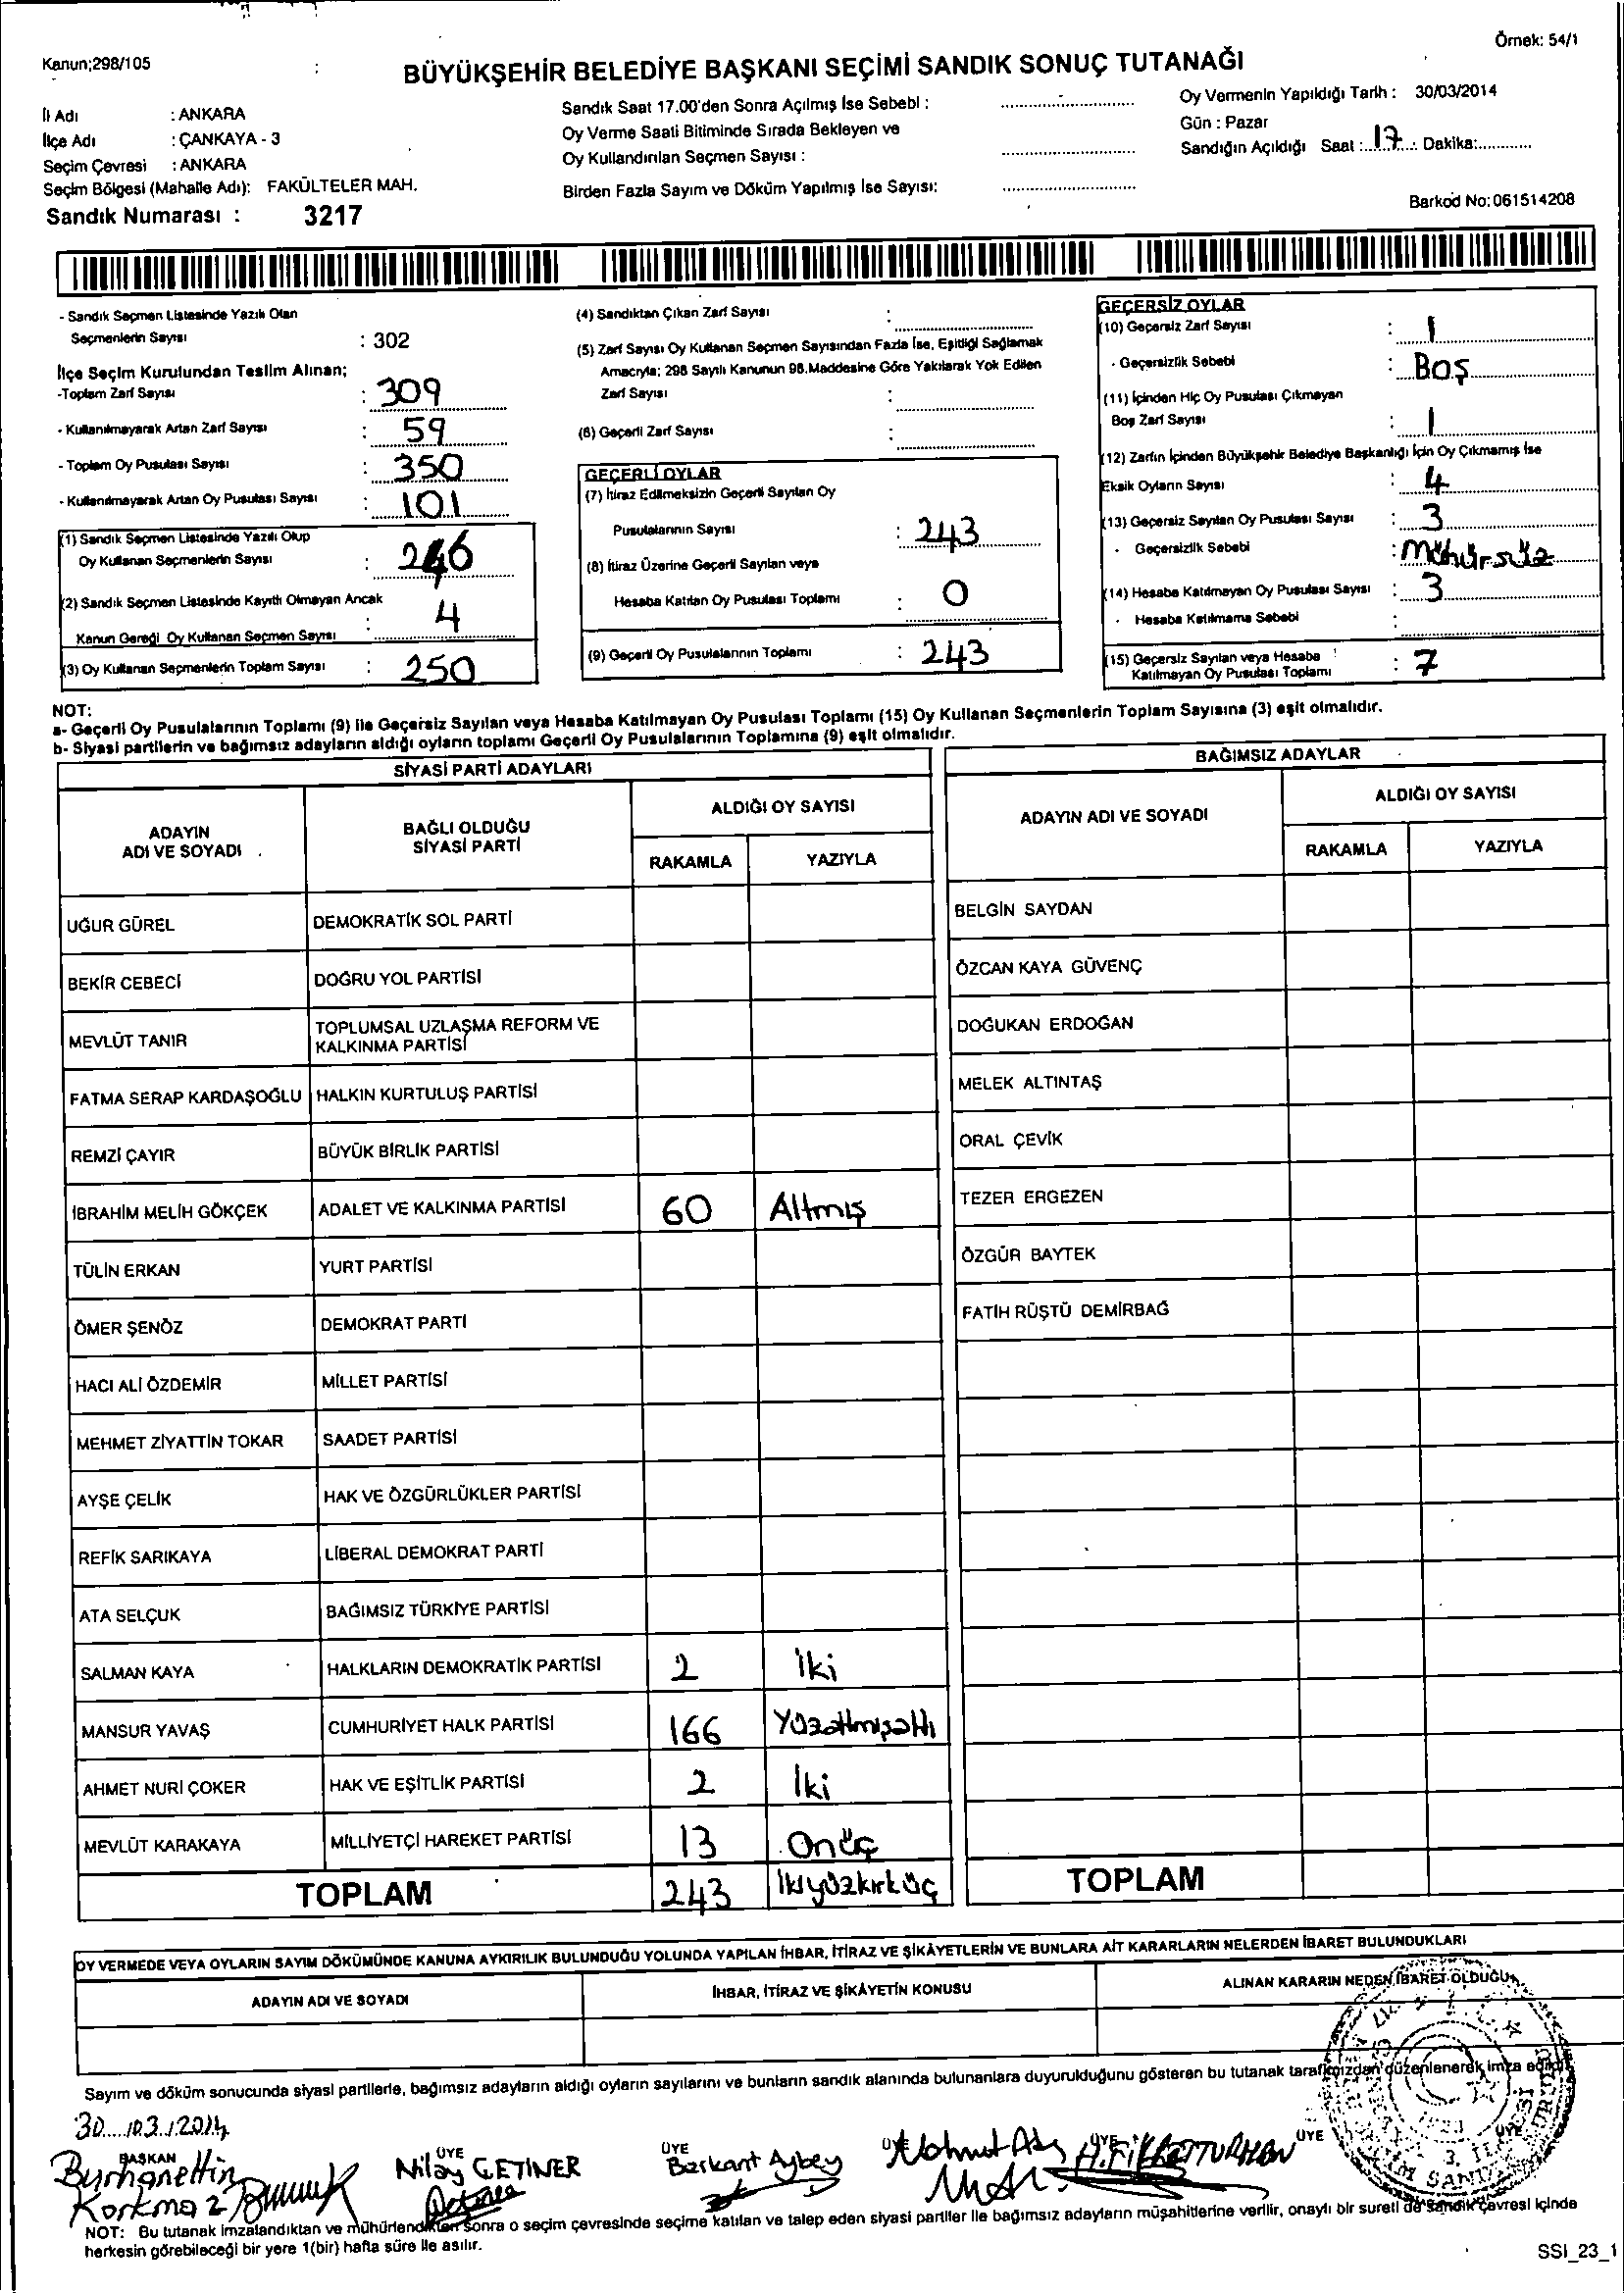 Örnek: 54/1
Kanun;298/105
BÜYÜKŞEHİR BELEDİYE BAŞKANI SEÇİMİ SANDIK SONUÇ TUTANAĞI
İl Adı : ANKARA
İlçe Adı : ÇANKAYA - 3
Seçim Çevresi : ANKARA
Seçim Bölgesi (Mahalle Adı): FAKÜLTELER MAH.
Sandık Numarası : 3217
Sandık Saat 17.00'den Sonra Açılmış İse Sebebi :
Oy Verme Saati Bitiminde Sırada Bekleyen ve
Oy Kullandırılan Seçmen Sayısı :
Birden Fazla Sayım ve Döküm Yapılmış İse Sayısı:
Oy Vermenin Yapıldığı Tarih : 30/03/2014
Gün : Pazar
Sandığın Açıldığı Saat : 17 Dakika:
Barkod No: 061514208
- Sandık Seçmen Listesinde Yazılı Olan
Seçmenlerin Sayısı : 302
İlçe Seçim Kurulundan Teslim Alınan;
-Toplam Zarf Sayısı : 309
- Kullanılmayarak Artan Zarf Sayısı : 59
- Toplam Oy Pusulası Sayısı : 350
- Kullanılmayarak Artan Oy Pusulası Sayısı : 101
(1) Sandık Seçmen Listesinde Yazılı Olup
Oy Kullanan Seçmenlerin Sayısı : 246
(2) Sandık Seçmen Listesinde Kayıtlı Olmayan Ancak
Kanun Gereği Oy Kullanan Seçmen Sayısı : 4
(3) Oy Kullanan Seçmenlerin Toplam Sayısı : 250
(4) Sandıktan Çıkan Zarf Sayısı :
(5) Zarf Sayısı Oy Kullanan Seçmen Sayısından Fazla İse, Eşitliği Sağlamak
Amacıyla; 298 Sayılı Kanunun 98.Maddesine Göre Yakılarak Yok Edilen
Zarf Sayısı :
(6) Geçerli Zarf Sayısı :
GEÇERLİ OYLAR
(7) İtiraz Edilmeksizin Geçerli Sayılan Oy
Pusulalarının Sayısı : 243
(8) İtiraz Üzerine Geçerli Sayılan veya
Hesaba Katılan Oy Pusulası Toplamı : 0
(9) Geçerli Oy Pusulalarının Toplamı : 243
GEÇERSİZ OYLAR
(10) Geçersiz Zarf Sayısı : 1
- Geçersizlik Sebebi : BOŞ
(11) İçinden Hiç Oy Pusulası Çıkmayan
Boş Zarf Sayısı : 1
(12) Zarfın İçinden Büyükşehir Belediye Başkanlığı İçin Oy Çıkmamış İse
Eksik Oyların Sayısı : 4
(13) Geçersiz Sayılan Oy Pusulası Sayısı : 3
- Geçersizlik Sebebi : mühürsüz
(14) Hesaba Katılmayan Oy Pusulası Sayısı : 3
- Hesaba Katılmama Sebebi :
(15) Geçersiz Sayılan veya Hesaba
Katılmayan Oy Pusulası Toplamı : 7
NOT:
a- Geçerli Oy Pusulalarının Toplamı (9) ile Geçersiz Sayılan veya Hesaba Katılmayan Oy Pusulası Toplamı (15) Oy Kullanan Seçmenlerin Toplam Sayısına (3) eşit olmalıdır.
b- Siyasi partilerin ve bağımsız adayların aldığı oyların toplamı Geçerli Oy Pusulalarının Toplamına (9) eşit olmalıdır.
SİYASİ PARTİ ADAYLARI
ADAYIN ADI VE SOYADI
BAĞLI OLDUĞU SİYASİ PARTİ
ALDIĞI OY SAYISI
RAKAMLA YAZIYLA
UĞUR GÜREL DEMOKRATİK SOL PARTİ
BEKİR CEBECİ DOĞRU YOL PARTİSİ
MEVLÜT TANIR TOPLUMSAL UZLAŞMA REFORM VE KALKINMA PARTİSİ
FATMA SERAP KARDAŞOĞLU HALKIN KURTULUŞ PARTİSİ
REMZİ ÇAYIR BÜYÜK BİRLİK PARTİSİ
İBRAHİM MELİH GÖKÇEK ADALET VE KALKINMA PARTİSİ 60 Altmış
TÜLİN ERKAN YURT PARTİSİ
ÖMER ŞENÖZ DEMOKRAT PARTİ
HACI ALİ ÖZDEMİR MİLLET PARTİSİ
MEHMET ZİYATTİN TOKAR SAADET PARTİSİ
AYŞE ÇELİK HAK VE ÖZGÜRLÜKLER PARTİSİ
REFİK SARIKAYA LİBERAL DEMOKRAT PARTİ
ATA SELÇUK BAĞIMSIZ TÜRKİYE PARTİSİ
SALMAN KAYA HALKLARIN DEMOKRATİK PARTİSİ 2 İki
MANSUR YAVAŞ CUMHURİYET HALK PARTİSİ 166 Yüzaltmışaltı
AHMET NURİ ÇOKER HAK VE EŞİTLİK PARTİSİ 2 İki
MEVLÜT KARAKAYA MİLLİYETÇİ HAREKET PARTİSİ 13 Onüç
TOPLAM 243 İkiyüzkırküç
BAĞIMSIZ ADAYLAR
ADAYIN ADI VE SOYADI
ALDIĞI OY SAYISI
RAKAMLA YAZIYLA
BELGİN SAYDAN
ÖZCAN KAYA GÜVENÇ
DOĞUKAN ERDOĞAN
MELEK ALTINTAŞ
ORAL ÇEVİK
TEZER ERGEZEN
ÖZGÜR BAYTEK
FATİH RÜŞTÜ DEMİRBAĞ
TOPLAM
OY VERMEDE VEYA OYLARIN SAYIM DÖKÜMÜNDE KANUNA AYKIRILIK BULUNDUĞU YOLUNDA YAPILAN İHBAR, İTİRAZ VE ŞİKÂYETLERİN VE BUNLARA AİT KARARLARIN NELERDEN İBARET BULUNDUKLARI
ADAYIN ADI VE SOYADI
İHBAR, İTİRAZ VE ŞİKÂYETİN KONUSU
ALINAN KARARIN NEDEN İBARET OLDUĞU
Sayım ve döküm sonucunda siyasi partilerle, bağımsız adayların aldığı oyların sayılarını ve bunların sandık alanında bulunanlara duyurulduğunu gösteren bu tutanak tarafımızdan düzenlenerek imza edildi.
30/03/2014
BAŞKAN ÜYE ÜYE ÜYE ÜYE ÜYE ÜYE
Burhanettin Korkmaz
Nilay ÇETİNER
Berkant Aybey
H.FİKRETTURHAN
NOT: Bu tutanak imzalandıktan ve mühürlendikten sonra o seçim çevresinde seçime katılan ve talep eden siyasi partiler ile bağımsız adayların müşahitlerine verilir, onaylı bir sureti de sandık çevresi içinde
herkesin görebileceği bir yere 1(bir) hafta süre ile asılır.
SSI_23_1